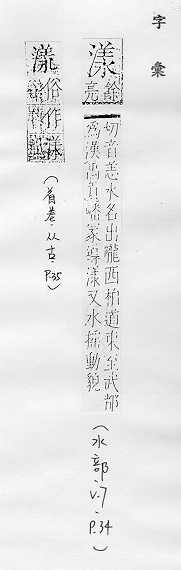 字彙
漾
餘
亮
切音恙水名出隴西柏道東至武都
為漢禹貢嶓冢導漾又水搖動貌
(水部.V.7.P.34)
俗作漾
(首卷.从古.P.35)